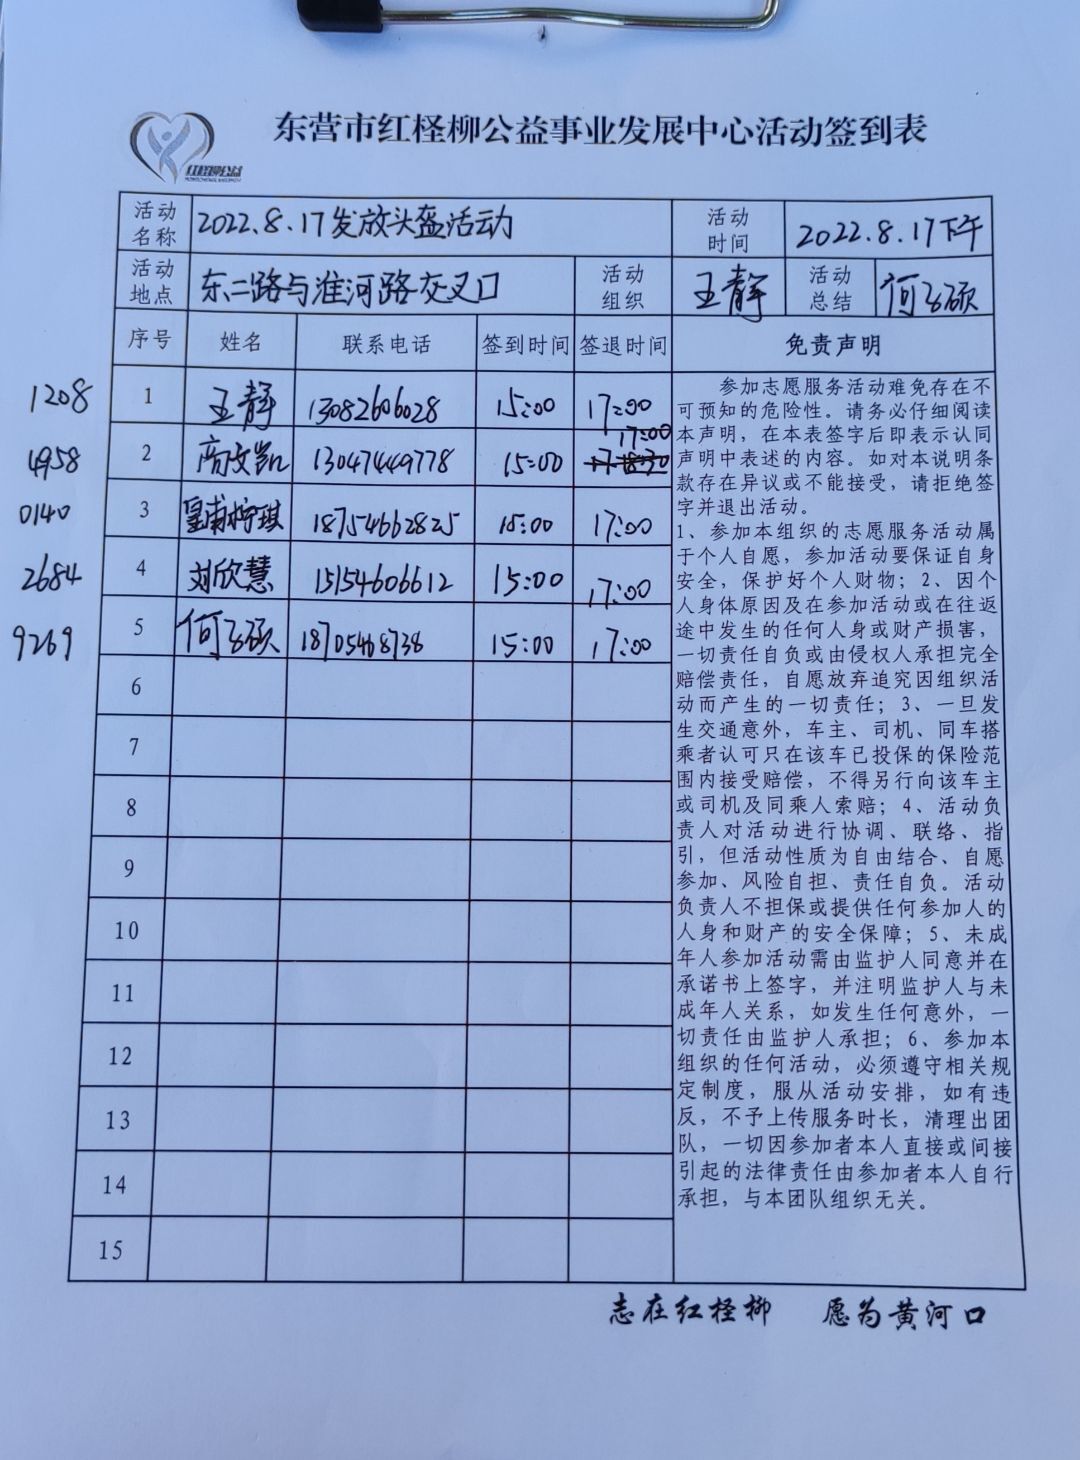 东营市红柽柳公益事业发展中心活动签到表
红柽柳公益
活动名称 2022.8.17发放头盔活动 活动时间 2022.8.17下午
活动地点 东二路与淮河路交叉口 活动组织 王静 活动总结 何子硕
序号 姓名 联系电话 签到时间 签退时间 免责声明
1208 1 王静 13082606028 15:00 17:00
4958 2 商文凯 13047449778 15:00 17:00
0140 3 皇甫柠琪 18754662825 15:00 17:00
2684 4 刘欣慧 15154606612 15:00 17:00
9269 5 何子硕 18705468738 15:00 17:00
6
7
8
9
10
11
12
13
14
15
参加志愿服务活动难免存在不
可预知的危险性。请务必仔细阅读
本声明，在本表签字后即表示认同
声明中表述的内容。如对本说明条
款存在异议或不能接受，请拒绝签
字并退出活动。
1、参加本组织的志愿服务活动属
于个人自愿，参加活动要保证自身
安全，保护好个人财物；2、因个
人身体原因及在参加活动或在往返
途中发生的任何人身或财产损害，
一切责任自负或由侵权人承担完全
赔偿责任，自愿放弃追究因组织活
动而产生的一切责任；3、一旦发
生交通意外，车主、司机、同车搭
乘者认可只在该车已投保的保险范
围内接受赔偿，不得另行向该车主
或司机及同乘人索赔；4、活动负
责人对活动进行协调、联络、指
引，但活动性质为自由结合、自愿
参加、风险自担、责任自负。活动
负责人不担保或提供任何参加人的
人身和财产的安全保障；5、未成
年人参加活动需由监护人同意并在
承诺书上签字，并注明监护人与未
成年人关系，如发生任何意外，一
切责任由监护人承担；6、参加本
组织的任何活动，必须遵守相关规
定制度，服从活动安排，如有违
反，不予上传服务时长，清理出团
队，一切因参加者本人直接或间接
引起的法律责任由参加者本人自行
承担，与本团队组织无关。
志在红柽柳 愿为黄河口